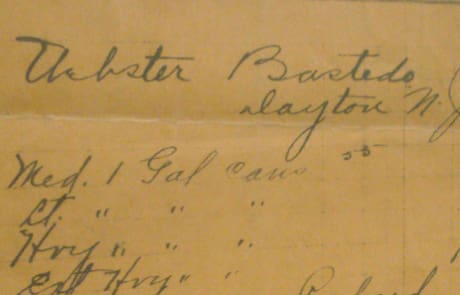 Webster Bastedo
Dayton N. J
Med. 1 Gal cans 55
Lt. " " "
Hvy " " "
Ext Hvy " "